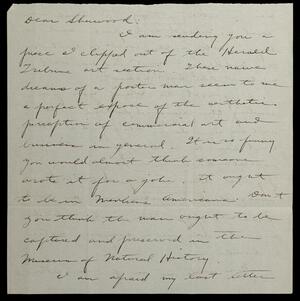 Dear Sherwood:
I am sending you a
piece I clipped out of the Herald
Tribune art section. These naive
dreams of a poster man seem to me
a perfect expose of the aesthetic
preception of commercial art and
business in general. It is so funny
you would almost think someone
wrote it for a joke. It ought
to be in Menckens Americana. Don't
you think the man ought to be
captured and preserved in the
Museum of Natural History
I am afraid my last letter